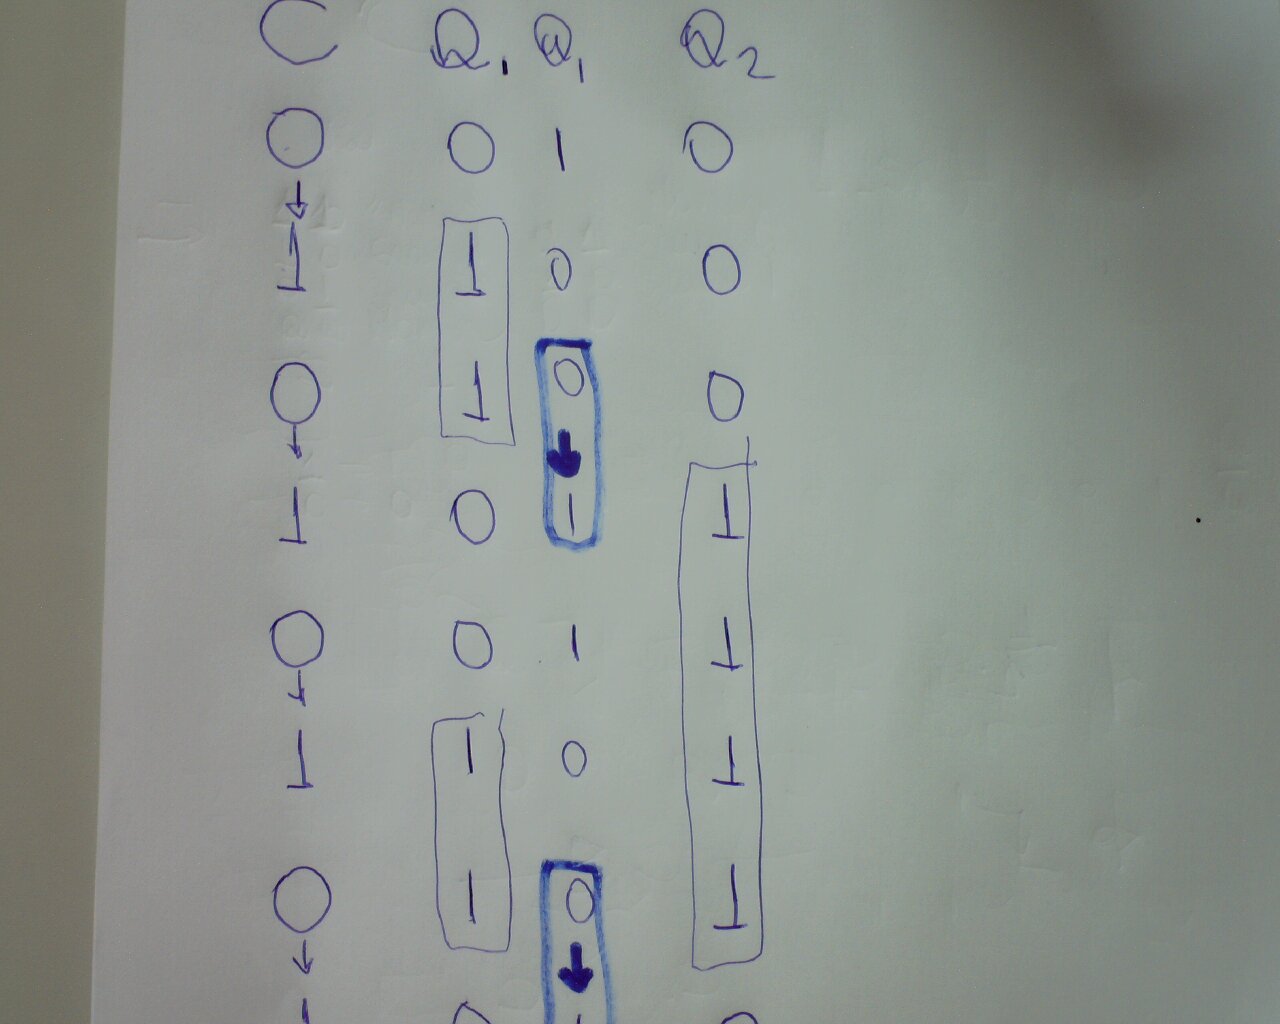 C Q1 Q1 Q2
0 0 1 0
↓
1 1 0 0
0 1 0 0
↓ ↓
1 0 1 1
0 0 1 1
↓
1 1 0 1
0 1 0 1
↓ ↓
1 0 1 0